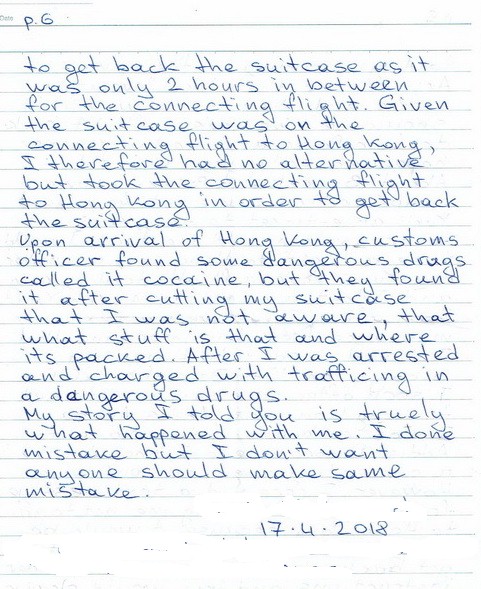 Date p.6
to get back the suitcase as it
was only 2 hours in between
for the connecting flight. Given
the suitcase was on the
connecting flight to Hong Kong,
I therefore had no alternative
but took the connecting flight
to Hong Kong in order to get back
the suitcase.
Upon arrival of Hong Kong, customs
officer found some dangerous drags
called it cocaine, but they found
it after cutting my suitcase
that I was not aware, that
what stuff is that and where
its packed. After I was arrested
and charged with trafficing in
a dangerous drugs.
My story I told you is truely
what happened with me. I done
mistake but I don't want
anyone should make same
mistake.
17.4.2018